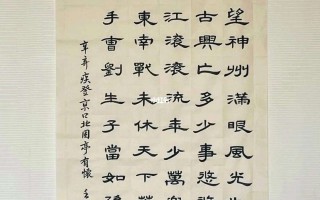 望神州滿眼風光北
古興亡多少事悠悠
江滾滾流年少萬兜
東南戰未休天下英
手曹劉生子當如孫
辛弃疾登京口北固亭有懷